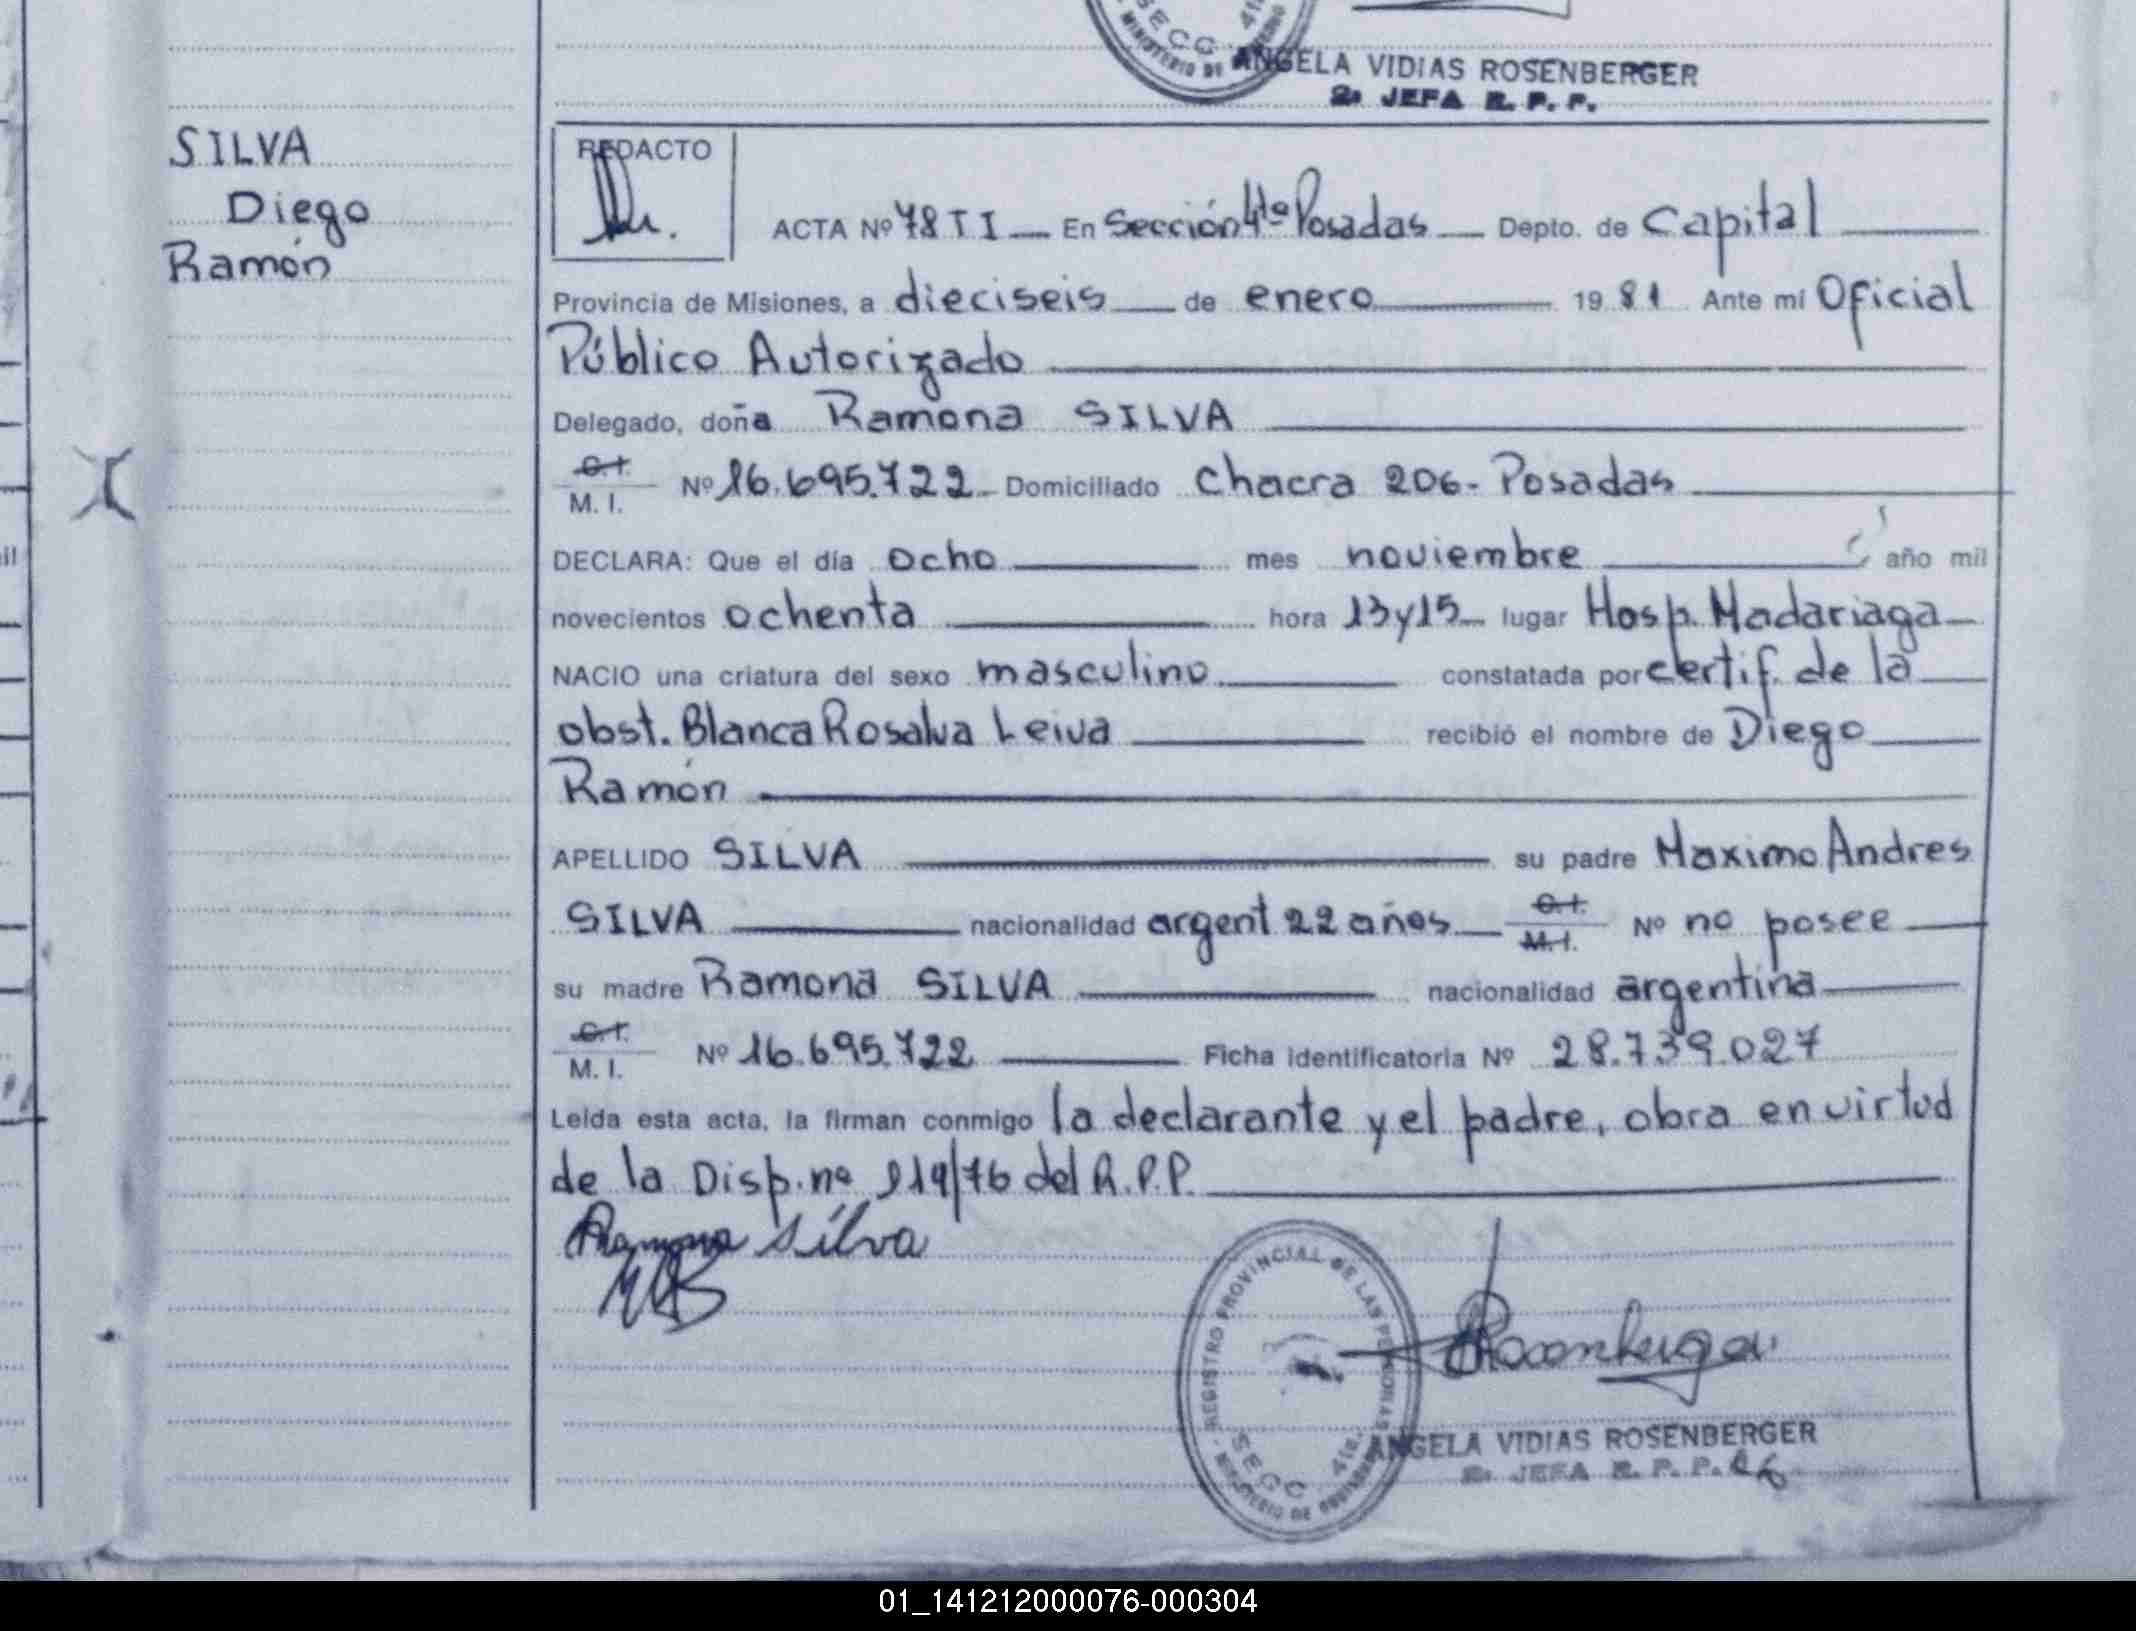 SECC 4ta
MINISTERIO DE GOBIERNO
ANGELA VIDIAS ROSENBERGER
2a JEFA R. P. P.
SILVA
Diego
Ramón
REDACTO
ACTA Nº 78 T I En Sección 4ta Posadas Depto. de Capital
Provincia de Misiones, a dieciseis de enero 19 81 Ante mi Oficial
Público Autorizado
Delegado, doña Ramona SILVA
C.I.
M. I. Nº 16.695.722 Domiciliado Chacra 206- Posadas
DECLARA: Que el día ocho mes noviembre año mil
novecientos ochenta hora 13y15 lugar Hosp. Madariaga
NACIO una criatura del sexo masculino constatada por certif. de la
obst. Blanca Rosalva Leiva recibió el nombre de Diego
Ramón
APELLIDO SILVA su padre Maximo Andres
SILVA nacionalidad argent 22 años C.I. M.I. Nº no posee
su madre Ramona SILVA nacionalidad argentina
C.I.
M. I. Nº 16.695.722 Ficha identificatoria Nº 28.739.027
Leída esta acta, la firman conmigo la declarante y el padre, obra en virtud
de la Disp. nº 119/76 del R.P.P.
Ramona Silva
REGISTRO PROVINCIAL DE LAS PERSONAS
SECC 4ta.
MINISTERIO DE GOBIERNO
Rosenberger
ANGELA VIDIAS ROSENBERGER
2a JEFA R. P. P.
01_141212000076-000304